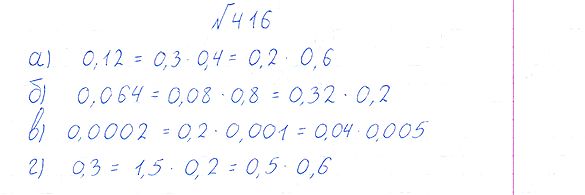 №416
а) 0,12 = 0,3 · 0,4 = 0,2 · 0,6
б) 0,064 = 0,08 · 0,8 = 0,32 · 0,2
в) 0,0002 = 0,2 · 0,001 = 0,04 · 0,005
г) 0,3 = 1,5 · 0,2 = 0,5 · 0,6